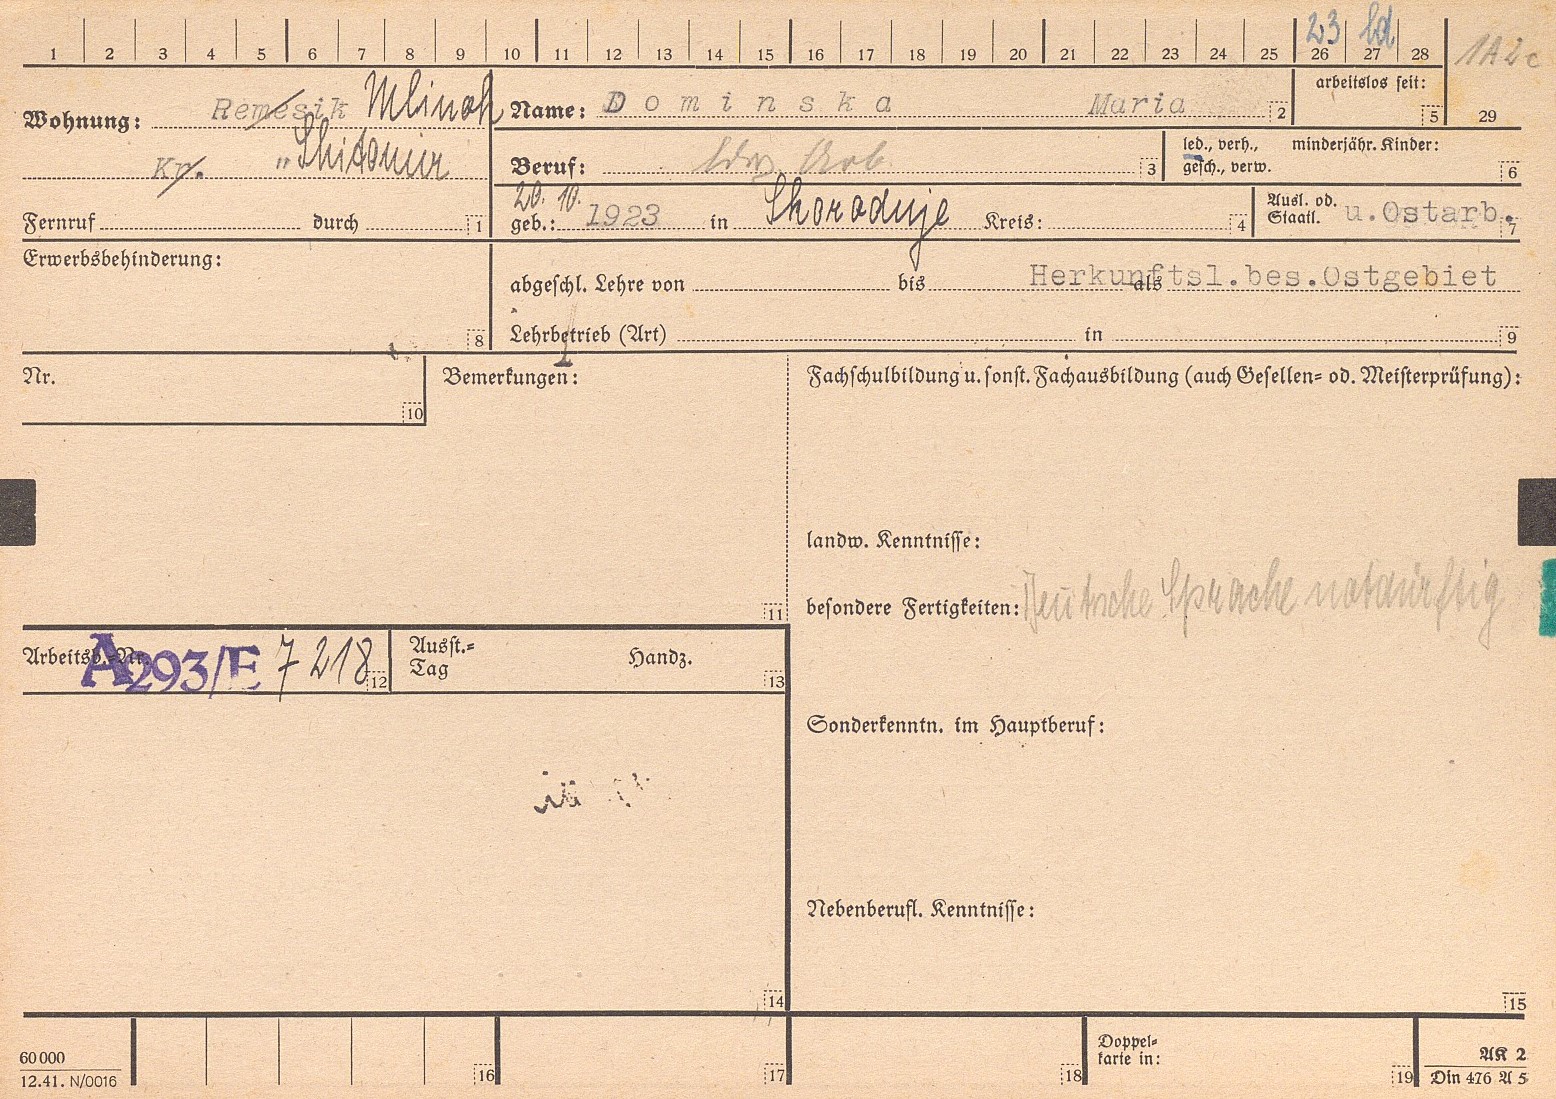 1 2 3 4 5 6 7 8 9 10 11 12 13 14 15 16 17 18 19 20 21 22 23 24 25 26 27 28
23 bd
1A2c
Wohnung: Remesik Mlinok
Kr. "Shitomir
Fernruf durch 1
Name: Dominska Maria 2
arbeitslos seit: 5
29
Beruf: ldw. Arb. 3
led., verh., minderjähr. Kinder:
gesch., verw. 6
20. 10.
geb.: 1923 in Skoroduje Kreis: 4
Ausl. od.
Staatl. u.Ostarb. 7
Erwerbsbehinderung: 8
Herkunftsl.bes.Ostgebiet
abgeschl. Lehre von bis als
Lehrbetrieb (Art) in 9
Nr. 10
Bemerkungen: 11
Fachschulbildung u. sonst. Fachausbildung (auch Gesellen= od. Meisterprüfung):
landw. Kenntnisse:
besondere Fertigkeiten: Deutsche Sprache notdürftig
Arbeitsb.-Nr. A293/E 7218 12
Ausst.=
Tag Handz. 13
Sonderkenntn. im Hauptberuf:
Nebenberufl. Kenntnisse:
14
15
60 000
12.41. N/0016
16
17
18
Doppel=
karte in: 19
AK 2
Din 476 A 5